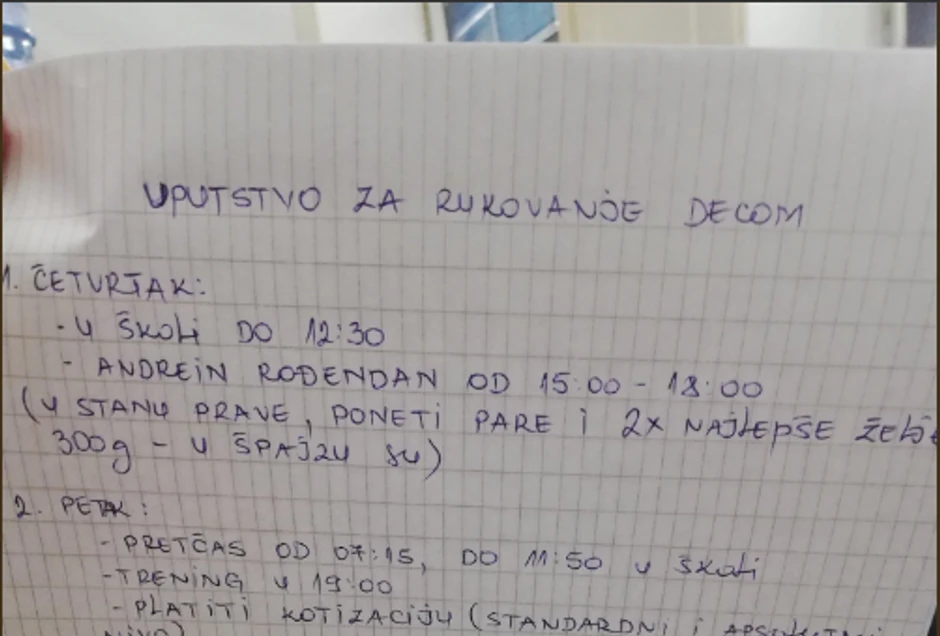 UPUTSTVO ZA RUKOVANJE DECOM
1. ČETVRTAK:
- U ŠKOLI DO 12:30
- ANDREIN ROĐENDAN OD 15:00 - 18:00
(U STANU PRAVE, PONETI PARE I 2x NAJLEPŠE
300g - U ŠPAJZU SU)
2. PETAK:
- PRETČAS OD 07:15, DO 11:50 U ŠKOLI
- TRENING U 19:00
- PLATITI KOTIZACIJU (STANDARDNI I